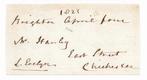 1821
Brighton April four
Mr Stanley
East Street
Chichester